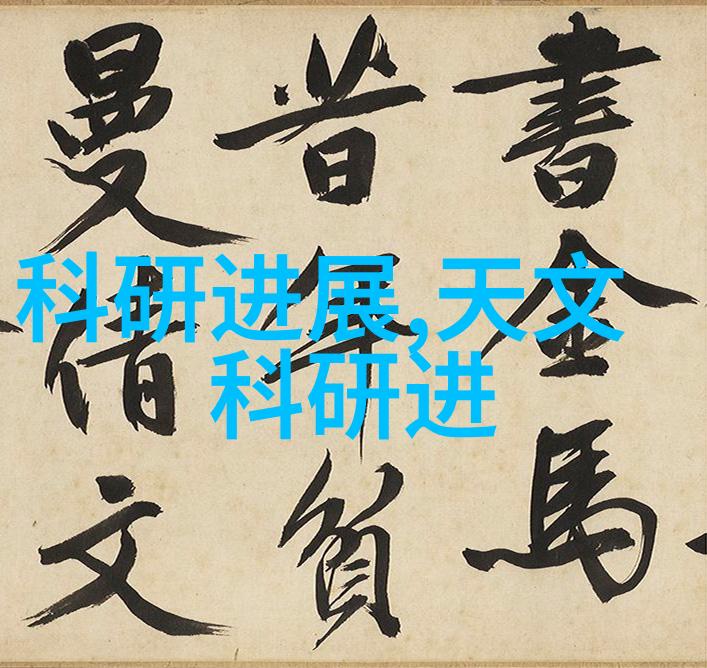 書金馬
昔年負
曼倩文
科研进展,天文
科研进